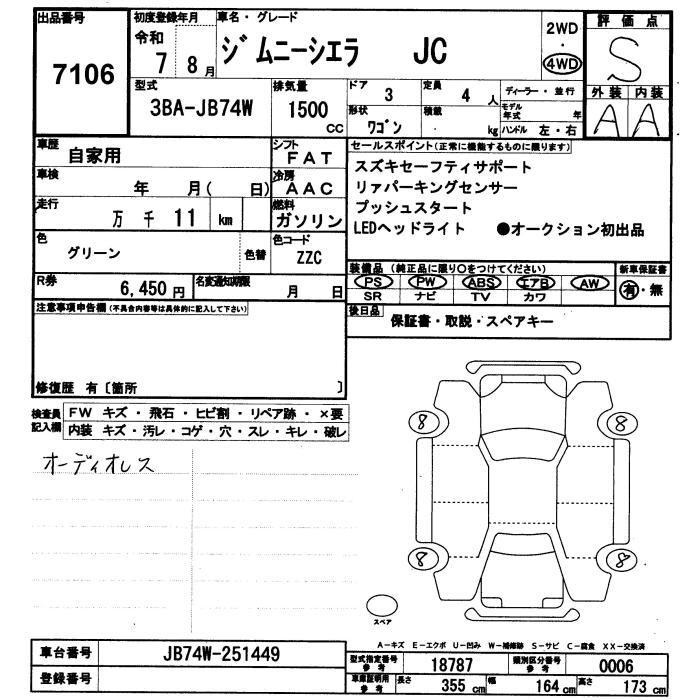 出品番号
7106
初度登録年月
令和
7 8月
車名・グレード
ジムニーシエラ JC
2WD
・
4WD
評価点
S
外装 内装
A A
型式
3BA-JB74W
排気量
1500
CC
ドア
3
定員
4 人
ディーラー・並行
モデル年式 年
形状
ワゴン
積載
kg
ハンドル 左・右
車歴
自家用
シフト
FAT
車検
年 月( 日)
冷房
AAC
走行
万 千 11 km
燃料
ガソリン
色
グリーン
色替
色コード
ZZC
R券
6,450 円
名変通知期限
月 日
セールスポイント(正常に機能するものに限ります)
スズキセーフティサポート
リァパーキングセンサー
プッシュスタート
LEDヘッドライト ●オークション初出品
装備品 (純正品に限り○をつけてください)
新車保証書
PS PW ABS エアB AW
有・無
SR ナビ TV カワ
後日品
保証書・取説・スペアキー
注意事項申告欄(不具合内容等は具体的に記入して下さい)
修復歴 有〔箇所 〕
検査員
記入欄
FW キズ・飛石・ヒビ割・リペア跡・×要
内装 キズ・汚レ・コゲ・穴・スレ・キレ・破レ
オーディオレス
8 8
8 8
スペア
A-キズ E-エクボ U-凹み W-補修跡 S-サビ C-腐食 XX-交換済
車台番号
JB74W-251449
登録番号
型式指定番号
参考
18787
類別区分番号
参考
0006
車庫証明用
参考
長さ
355 cm
幅
164 cm
高さ
173 cm